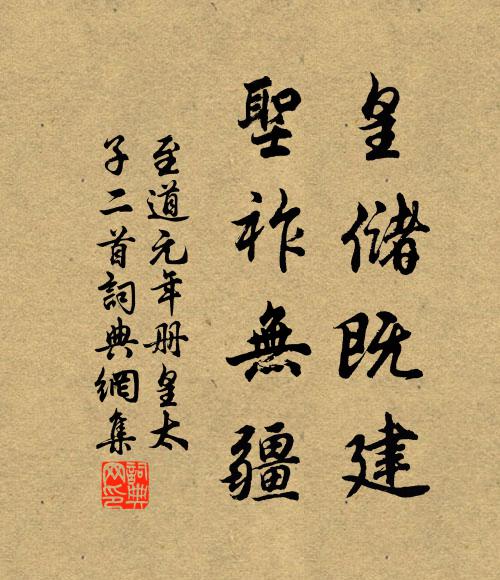 皇儲既建
聖祚無疆
至道元年册皇太
子二首詞典網集
詞典
网印